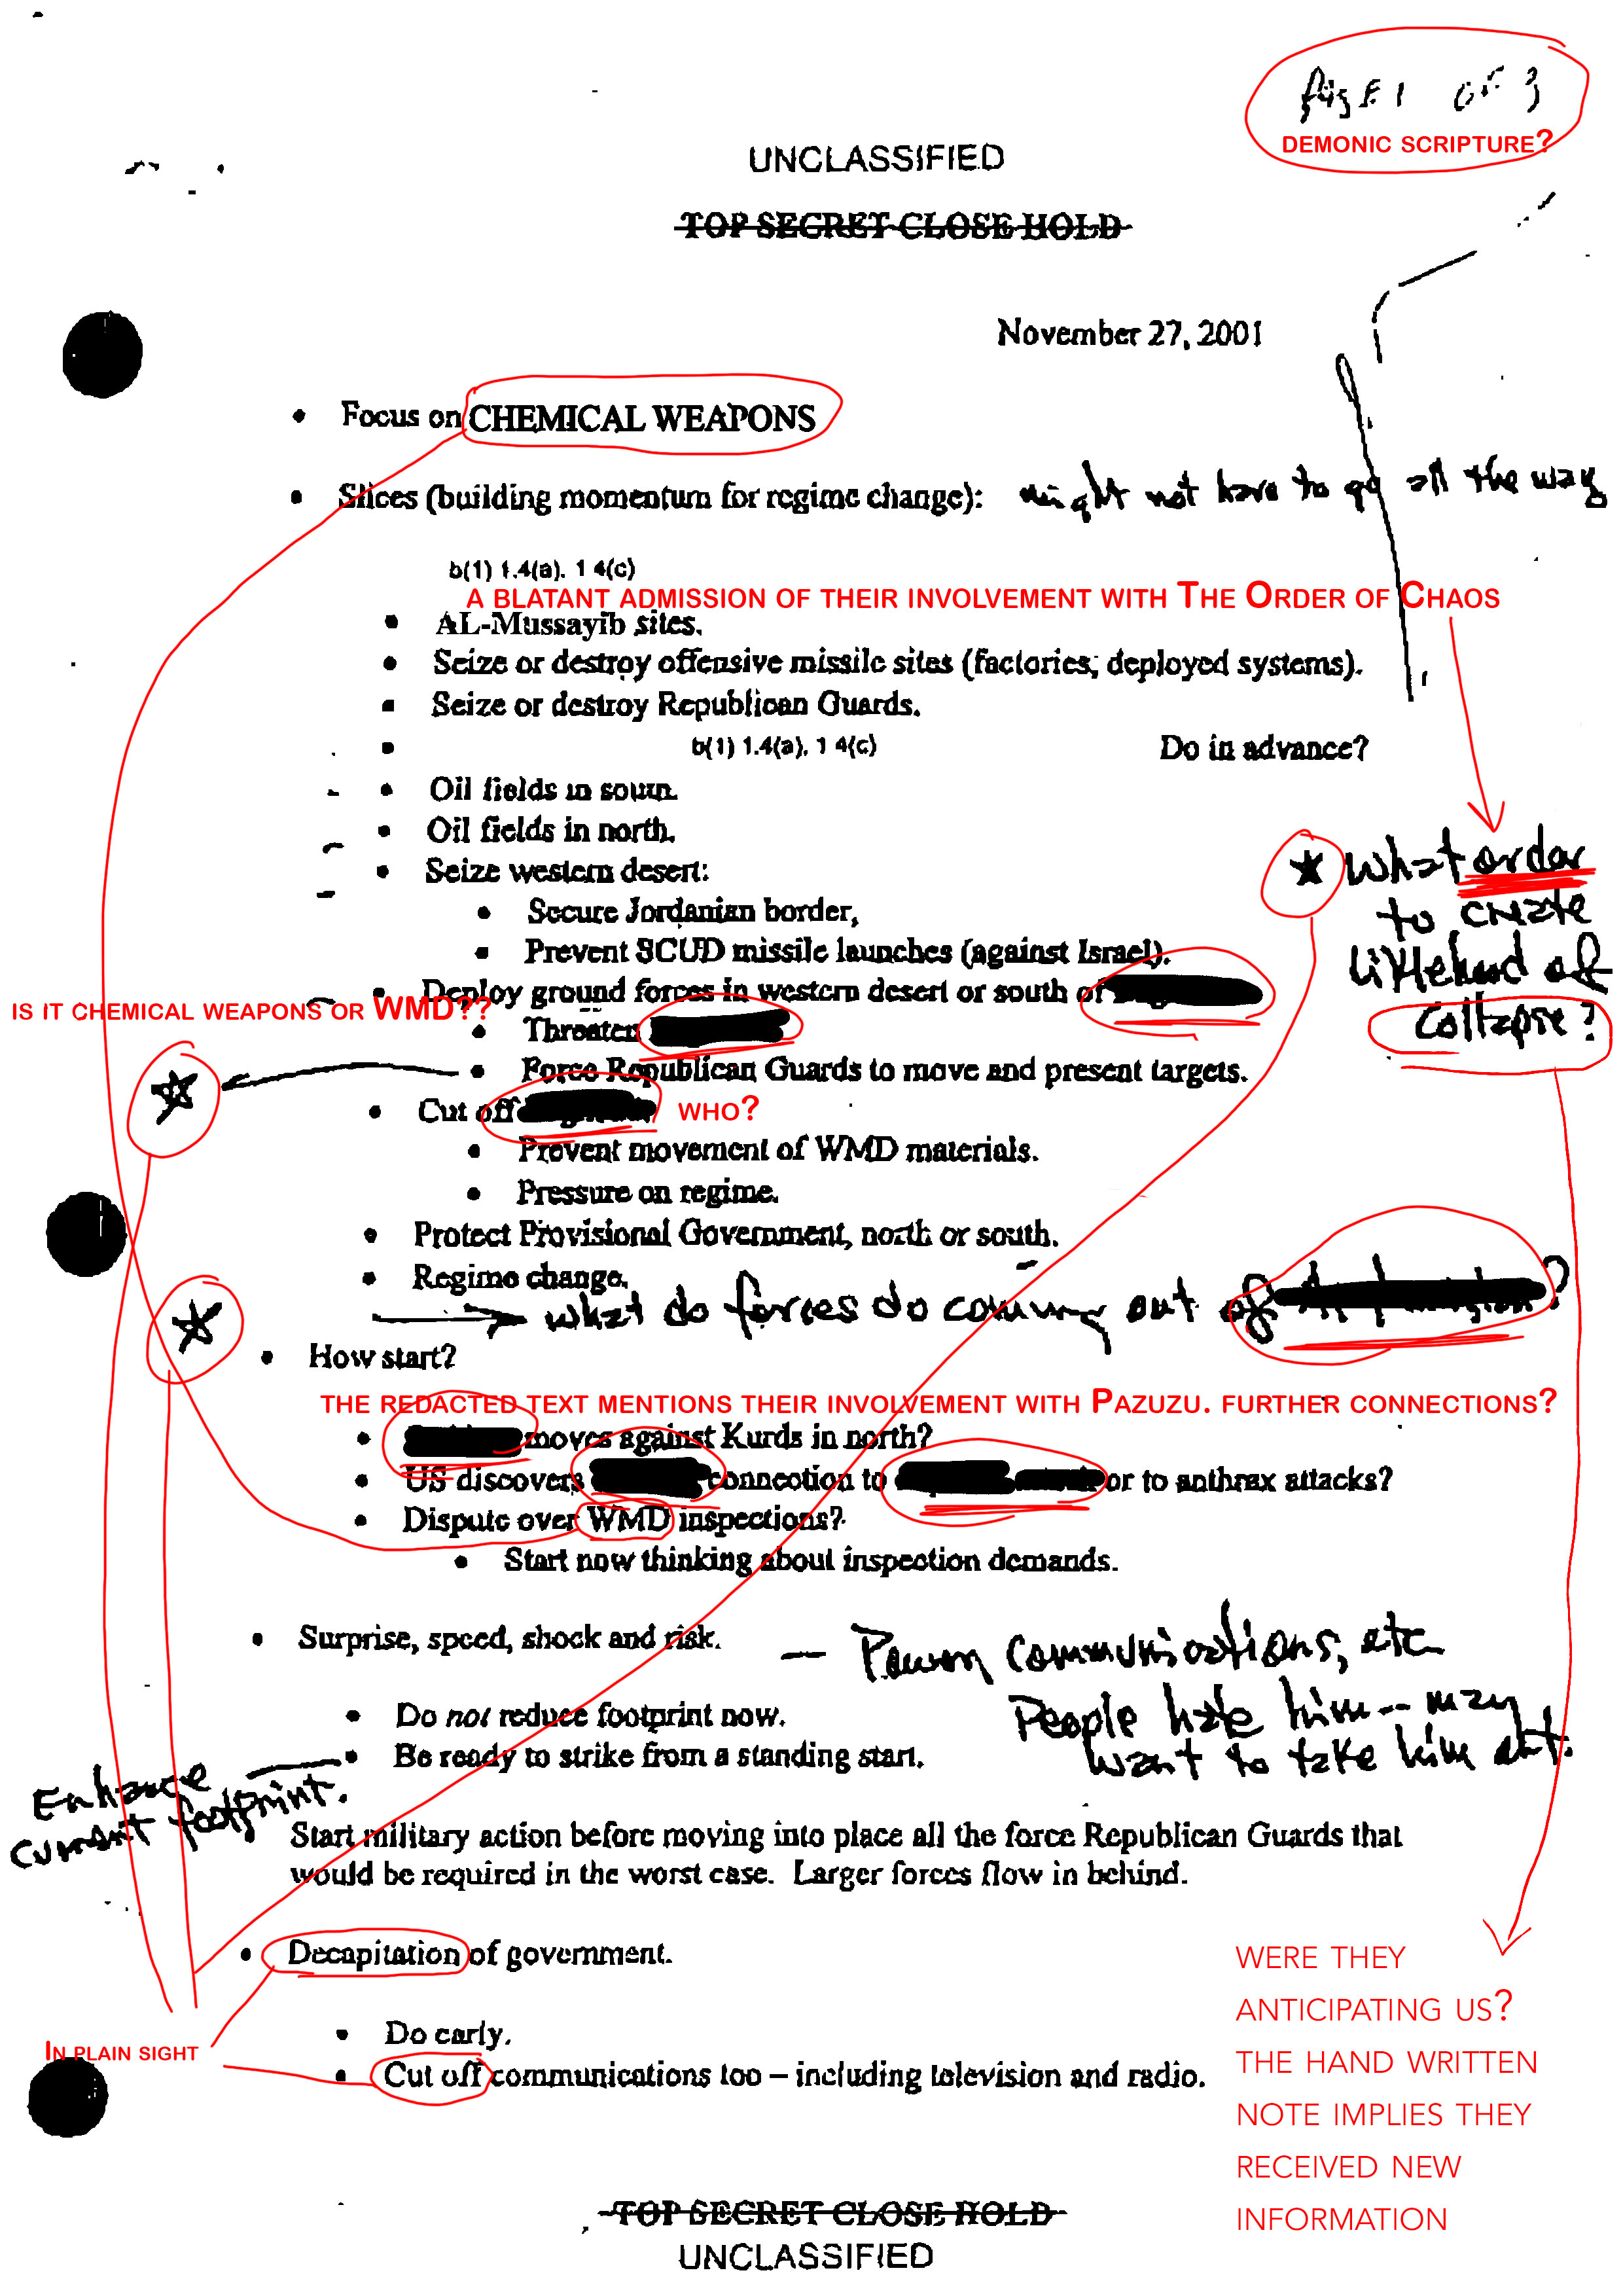 PAGE 1 OF 3
DEMONIC SCRIPTURE?
UNCLASSIFIED
TOP SECRET CLOSE HOLD
November 27, 2001
• Focus on CHEMICAL WEAPONS
• Slices (building momentum for regime change): might not have to go all the way
b(1) 1.4(a). 1 4(c)
A BLATANT ADMISSION OF THEIR INVOLVEMENT WITH THE ORDER OF CHAOS
• AL-Mussayib sites.
• Seize or destroy offensive missile sites (factories, deployed systems).
• Seize or destroy Republican Guards.
• b(1) 1.4(a). 1 4(c) Do in advance?
• Oil fields in south.
• Oil fields in north.
• Seize western desert:
★ What order
to create
likelihood of
collapse?
• Secure Jordanian border,
• Prevent SCUD missile launches (against Israel).
• Deploy ground forces in western desert or south of
IS IT CHEMICAL WEAPONS OR WMD??
• Threaten
• Force Republican Guards to move and present targets.
• Cut off WHO?
• Prevent movement of WMD materials.
• Pressure on regime.
• Protect Provisional Government, north or south.
• Regime change.
what do forces do coming out of ?
• How start?
THE REDACTED TEXT MENTIONS THEIR INVOLVEMENT WITH PAZUZU. FURTHER CONNECTIONS?
• moves against Kurds in north?
• US discovers connection to or to anthrax attacks?
• Dispute over WMD inspections?
• Start now thinking about inspection demands.
• Surprise, speed, shock and risk. — communications, etc
People hate him -- may
want to take him out.
• Do not reduce footprint now.
• Be ready to strike from a standing start.
Enhance
current footprint.
Start military action before moving into place all the force Republican Guards that
would be required in the worst case. Larger forces flow in behind.
• Decapitation of government.
• Do early.
IN PLAIN SIGHT
• Cut off communications too – including television and radio.
WERE THEY
ANTICIPATING US?
THE HAND WRITTEN
NOTE IMPLIES THEY
RECEIVED NEW
INFORMATION
TOP SECRET CLOSE HOLD
UNCLASSIFIED